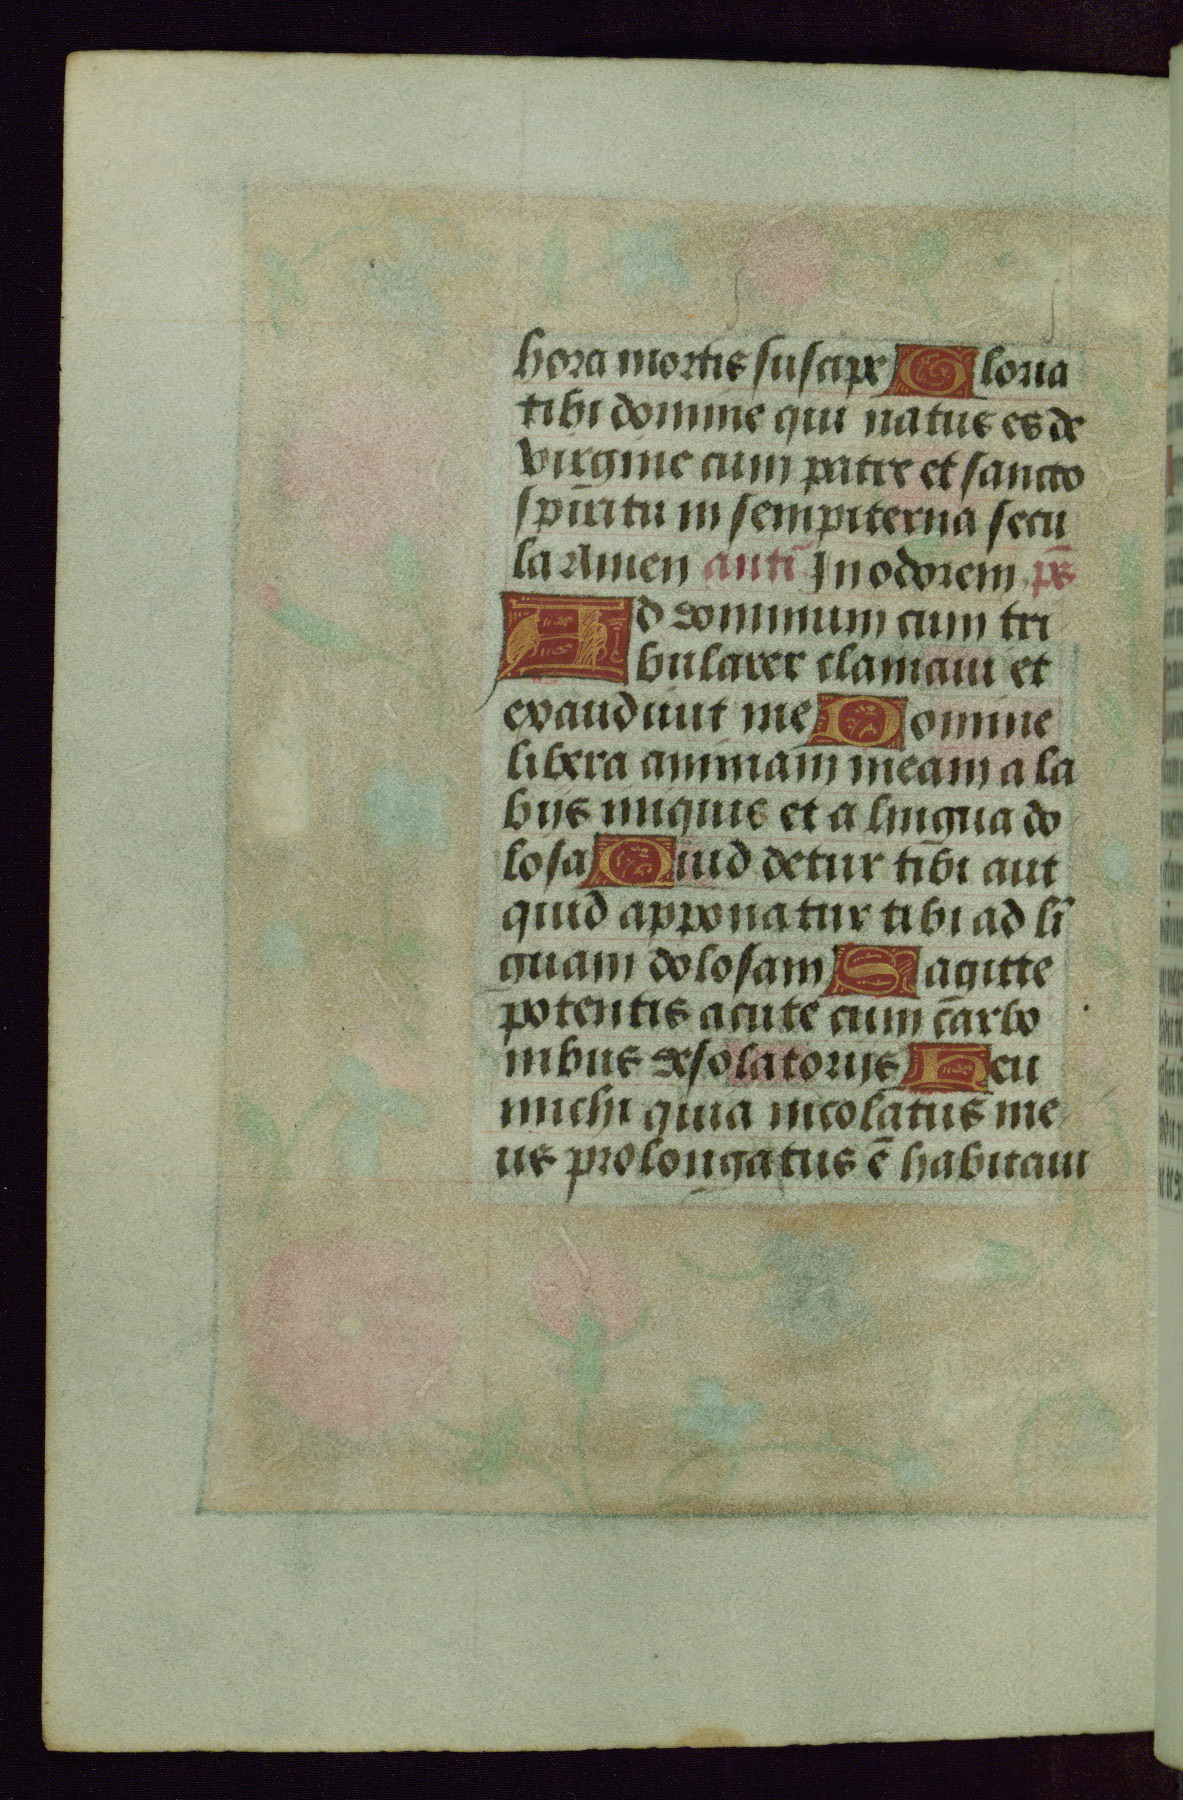 hora mortis suscipe Gloria
tibi domine qui natus es de
virgine cum patre et sancto
sp̄iritu in sempiterna secu
la Amen antī In odorem ps̄
Ad dominum cum tri
bularer clamaui et
exaudiuit me Domine
libera animam meam a la
bijs iniquis et a lingua do
losa Quid detur tibi aut
quid apponatur tibi ad lī
guam dolosam Sagitte
potentis acute cum carbo
nibus desolatorijs Heu
michi quia incolatus me
us prolongatus ē habitaui